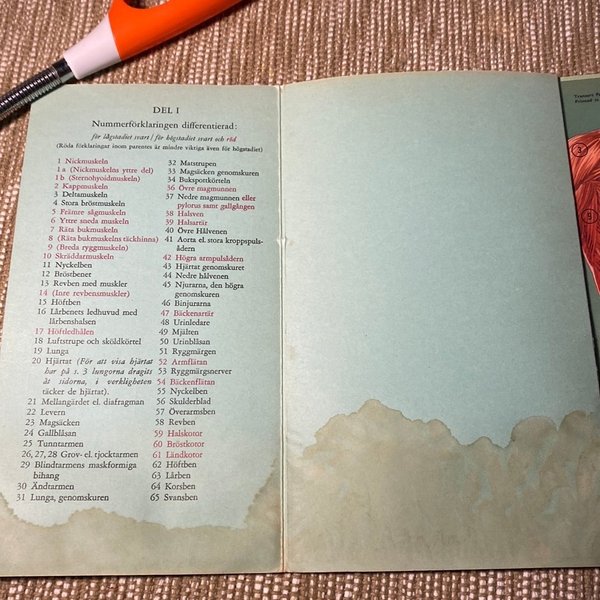 DEL I
Nummerförklaringen differentierad:
för lågstadiet svart / för högstadiet svart och röd
(Röda förklaringar inom parentes är mindre viktiga även för högstadiet)
1 Nickmuskeln
1 a (Nickmuskelns yttre del)
1 b (Sternohyoidmuskeln)
2 Kappmuskeln
3 Deltamuskeln
4 Stora bröstmuskeln
5 Främre sågmuskeln
6 Yttre sneda muskeln
7 Räta bukmuskeln
8 (Räta bukmuskelns täckhinna)
9 (Breda ryggmuskeln)
10 Skräddarmuskeln
11 Nyckelben
12 Bröstbenet
13 Revben med muskler
14 (Inre revbensmuskler)
15 Höftben
16 Lårbenets ledhuvud med
lårbenshalsen
17 Höftledhålen
18 Luftstrupe och sköldkörtel
19 Lunga
20 Hjärtat (För att visa hjärtat
har på s. 3 lungorna dragits
åt sidorna, i verkligheten
täcker de hjärtat).
21 Mellangärdet el. diafragman
22 Levern
23 Magsäcken
24 Gallblåsan
25 Tunntarmen
26, 27, 28 Grov- el. tjocktarmen
29 Blindtarmens maskformiga
bihang
30 Ändtarmen
31 Lunga, genomskuren
32 Matstrupen
33 Magsäcken genomskuren
34 Bukspottkörteln
36 Övre magmunnen
37 Nedre magmunnen eller
pylorus samt gallgången
38 Halsven
39 Halsartär
40 Övre Hålvenen
41 Aorta el. stora kroppspuls-
ådern
42 Högra armpulsådern
43 Hjärtat genomskuret
44 Nedre hålvenen
45 Njurarna, den högra
genomskuren
46 Binjurarna
47 Bäckenartär
48 Urinledare
49 Mjälten
50 Urinblåsan
51 Ryggmärgen
52 Armflätan
53 Ryggmärgsnerver
54 Bäckenflätan
55 Nyckelben
56 Skulderblad
57 Överarmsben
58 Revben
59 Halskotor
60 Bröstkotor
61 Ländkotor
62 Höftben
63 Lårben
64 Korsben
65 Svansben